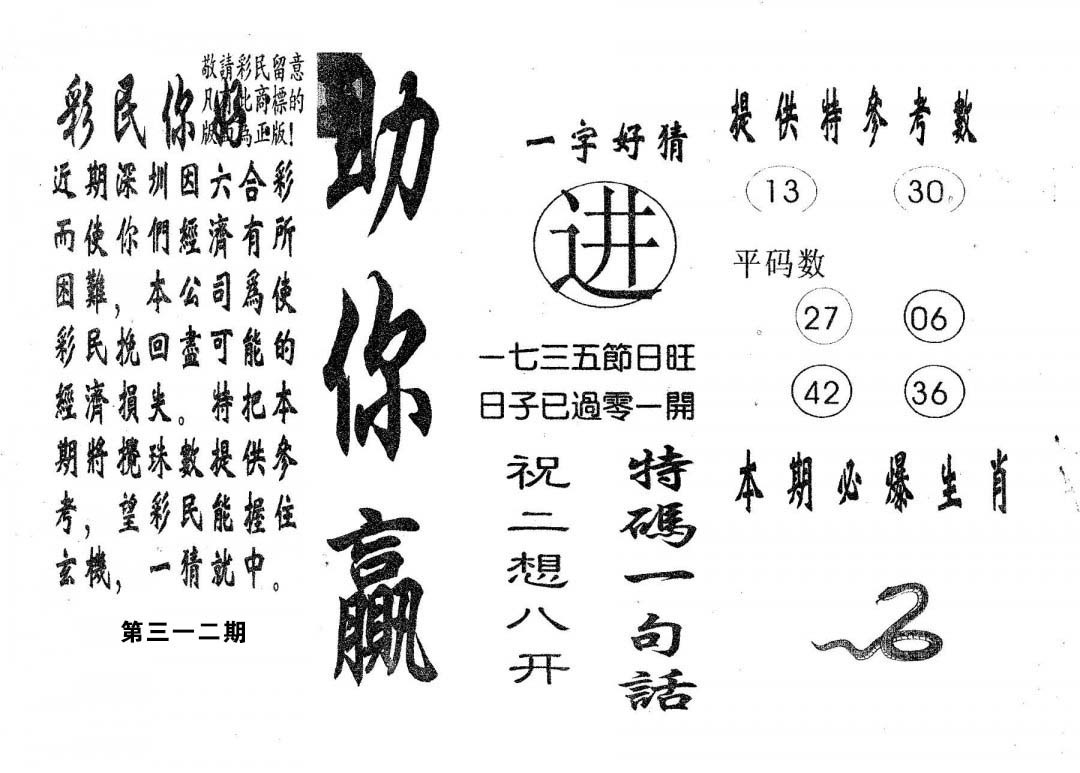 敬請彩民留意
凡有此商標的
版面為正版！
彩民你好
近期深圳因六合彩
而使你們經濟有所
困難，本公司爲使
彩民挽回盡可能的
經濟損失。特把本
期將攪珠數提供參
考，望彩民能握住
玄機，一猜就中。
第三一二期
助你贏
一字好猜
进
一七三五節日旺
日子已過零一開
特碼一句話
祝二想八开
提供特參考數
13 30
平码数
27 06
42 36
本期必爆生肖